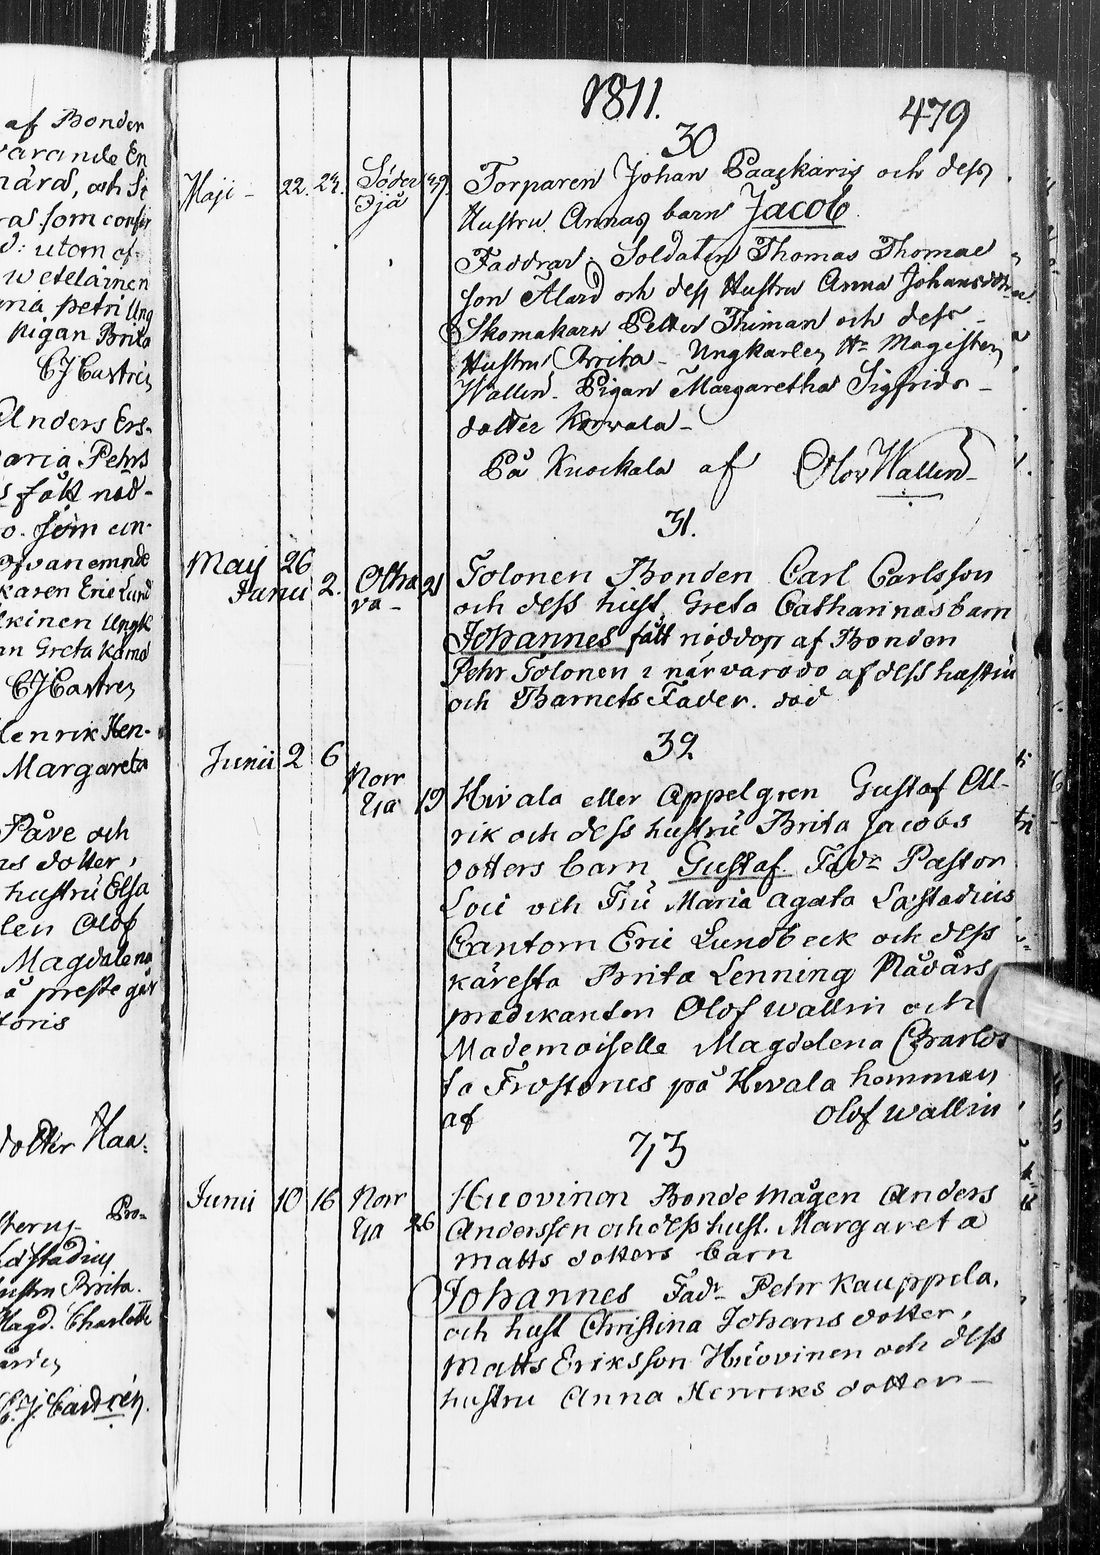 af Bonden
varande En
nära, och St
ras som confir
d: utom af-
wetelainen
na petri Ung
pigan Brita
CJ Castrén
Anders Ers-
aria Pehrs
s fått nöd-
o. som un-
ofvanemnde
karen Eric Lund
lkinen Ungk
an Greta
CJ Castren
Henrik Hen-
Margareta
Påve och
as dotter,
hustru Elsa
len Olof
Magdalena
å prestegår
toris
dotter Haa-
Pro-
Læstadius
ustru Brita
Magd. Charlotte
C.J. Castrén.
1811. 479
30
Maji - 22. 23. Söder 39. Torparen Johan Paaskaris och dess
Hustru Annas barn Jacob.
Faddrar. Soldaten Thomas Thomae
son Ålard och dess Hustru Anna Johansdotter
Skomakarn Petter Thiman och dess
Hustru Brita - Ungkarlen Hr Magister
Wallin. Pigan Margaretha Sigfrids-
dotter Korvala -
På Kuockala af Olov Wallin
31.
May 26
Junii 2. Oltava 21 Tolonen Bonden Carl Carlsson
och dess hust. Greta Catharinas barn
Johannes fått nöddop af Bonden
Pehr Tolonen i närvaro af dess hustru
och Barnets Fader. död
32
Junii 2 6
Norr
Yia 19 Hivala eller Appelgren Gustaf All-
rik och dess hustru Brita Jacobs
dotters barn Gustaf. Fadr Pastor
Loci och Fru Maria Agata Læstadius
Cantorn Eric Lundbeck och dess
käresta Brita Lenning Nådårs
predikanten Olof Wallin och
Mademoiselle Magdelena Charlot
ta Frosterus på Hivala hemman
af Olof Wallin
33
Junii 10 16 Norr
Yia 26 Huovinen Bonde mågen Anders
Anderssen och dess hust. Margareta
Matts dotters barn
Johannes Fadr Pehr Kauppila,
och hust Christina Johans dotter,
Matts Eriksson Huovinen och dess
hustru Anna Henriks dotter -